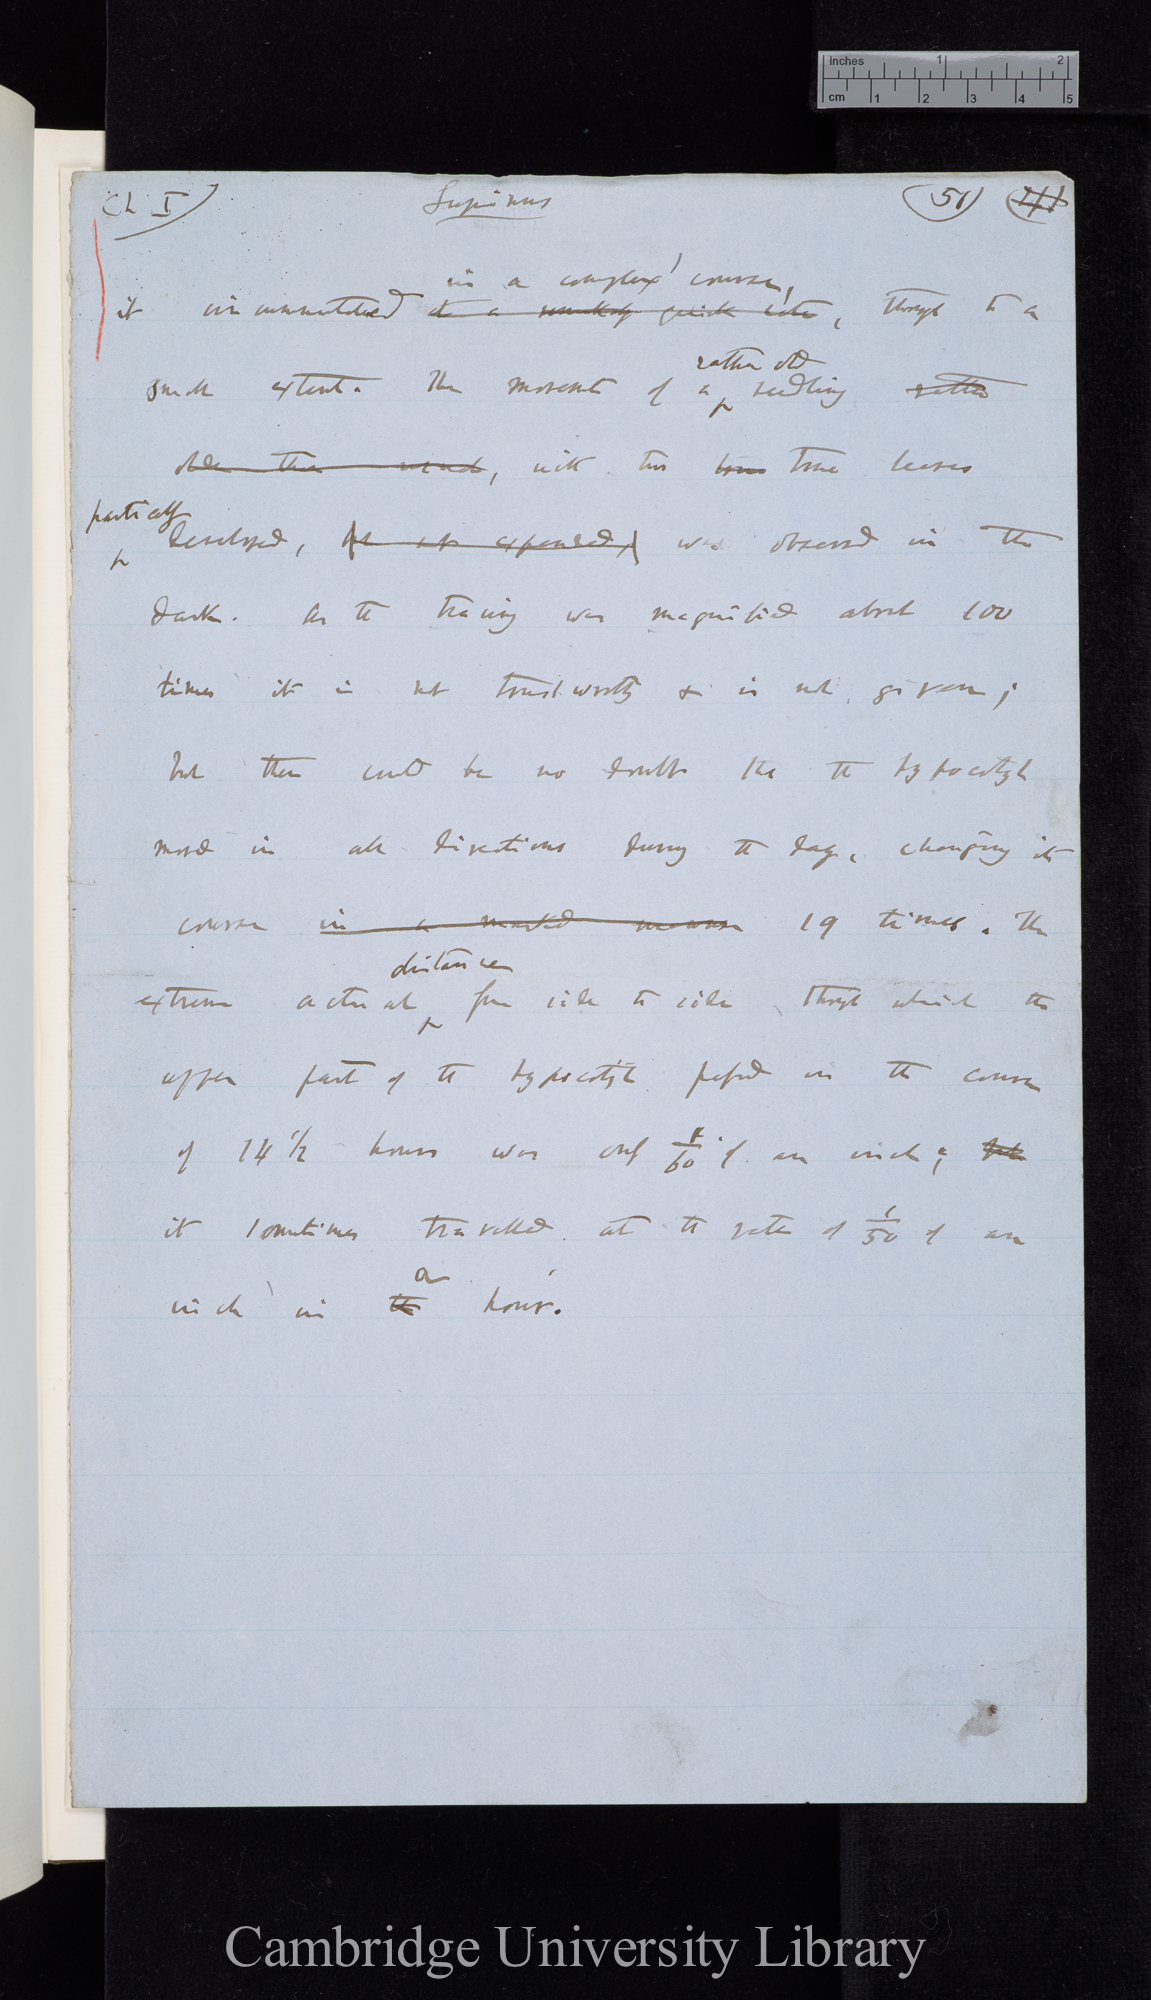 Inches 1 2
cm 1 2 3 4 5
Ch I Lupinus 51
in a complex course,
it circumnutated at a remarkably quick rate, though to a
rather old
small extent. The movement of a seedling rather
older than usual, with two true leaves
partially
developed, but not expanded, was observed in the
dark. As the tracing was magnified about 100
times it is not trustworthy & is not given;
but there could be no doubt that the hypocotyl
moved in all directions during the day, changing its
course in a marked manner 19 times. The
distance
extreme actual from side to side through which the
upper part of the hypocotyl passed in the course
of 14 1/2 hours was only 1/60 of an inch; but
it sometimes travelled at the rate of 1/50 of an
a
inch in the hour.
Cambridge University Library